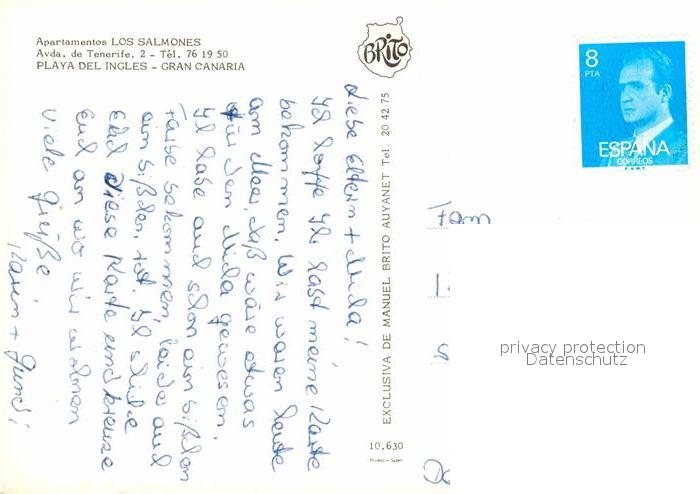 Apartamentos LOS SALMONES
Avda. de Tenerife, 2 - Tél. 76 19 50
PLAYA DEL INGLES - GRAN CANARIA
BRITO
8
PTA
ESPAÑA
CORREOS
F.N.M.T.
Liebe Eltern + Mida!
Ich hoffe Ihr habt meine Karte
bekommen. Wir waren heute
am Meer, daß wäre etwas
für den Mida gewesen.
Ich habe auch schon ein bißchen
Farbe bekommen, leider auch
ein bißchen rot. Ich schicke
Euch diese Karte und kreuze
Euch an wo wir wohnen
Viele Grüße
Karin + Gundi
EXCLUSIVA DE MANUEL BRITO AUYANET Tel. 20 42 75
10,630
Printed in Spain
Fam
privacy protection
Datenschutz